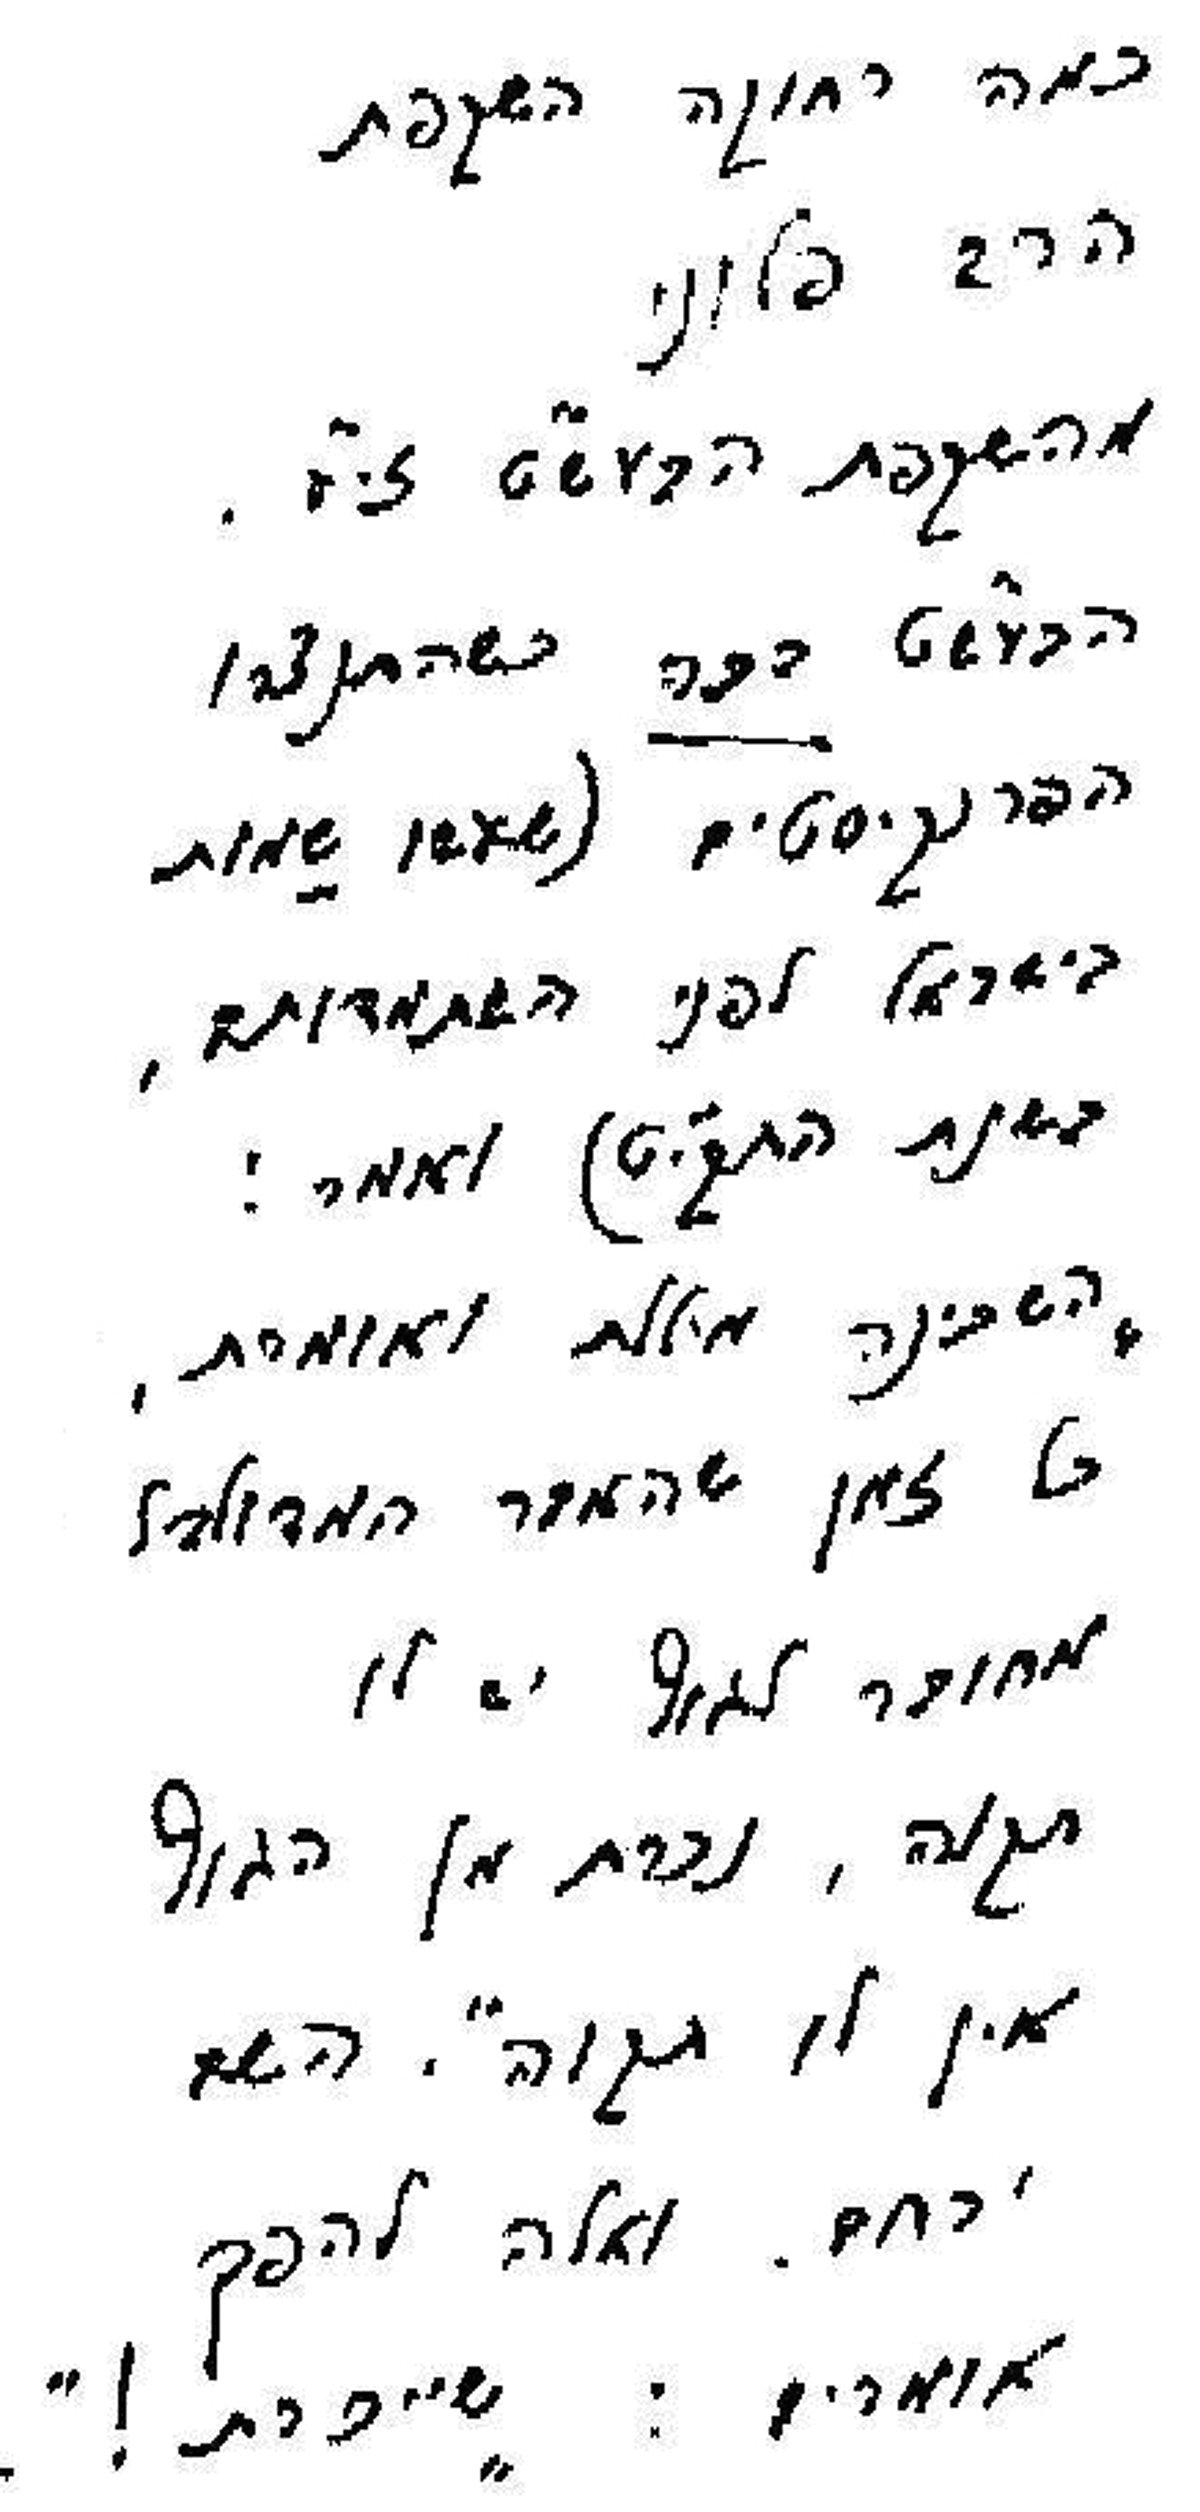 כמה רחוקה השקפת
הרב פלוני
מהשקפת הבעש"ט זי"ע .
הבעש"ט בכה כשהתנצרו
הפרנקיסטים (שעשו שמות
בישראל לפני השתמדותם ,
בשנת התקי"ט) ואמר :
„השכינה מיללת ואומרת ,
כל זמן שהאבר המדולדל
מחובר לגוף יש לו
תקוה , נכרת מן הגוף
אין לו תקוה". השם
ירחם . ואלה להפך
אומרים : „שייכרת !" .